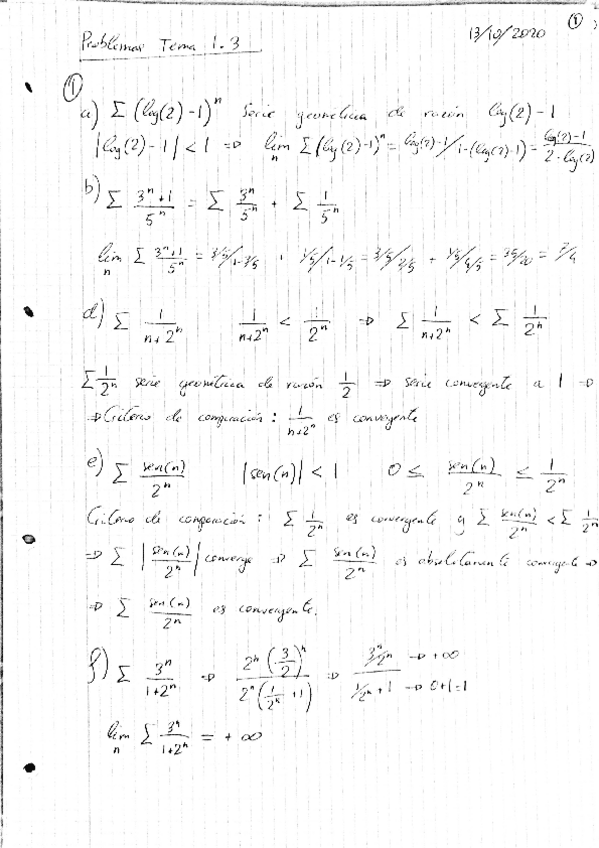 13/10/2020 ①
Problemas Tema 1.3
①
a) Σ (log(2)-1)^n Serie geométrica de razón log(2)-1
|log(2)-1| < 1 ⇒ lim_n Σ (log(2)-1)^n = log(2)-1/1-(log(2)-1) = log(2)-1/2-log(2)
b) Σ 3^n+1/5^n = Σ 3^n/5^n + Σ 1/5^n
lim_n Σ 3^n+1/5^n = 3/5/1-3/5 + 1/5/1-1/5 = 3/5/2/5 + 1/5/4/5 = 35/20 = 7/4
d) Σ 1/n+2^n 1/n+2^n < 1/2^n ⇒ Σ 1/n+2^n < Σ 1/2^n
Σ 1/2^n serie geométrica de razón 1/2 ⇒ serie convergente a 1 ⇒
⇒ Criterio de comparación: 1/n+2^n es convergente
e) Σ sen(n)/2^n |sen(n)| < 1 0 ≤ sen(n)/2^n ≤ 1/2^n
Criterio de comparación: Σ 1/2^n es convergente y Σ sen(n)/2^n < Σ 1/2^n
⇒ Σ |sen(n)/2^n| converge ⇒ Σ sen(n)/2^n es absolutamente convergente ⇒
⇒ Σ sen(n)/2^n es convergente.
f) Σ 3^n/1+2^n ⇒ 2^n(3/2)^n/2^n(1/2^n+1) ⇒ 3^n/2^n → +∞/1/2^n+1 → 0+1=1
lim_n Σ 3^n/1+2^n = +∞